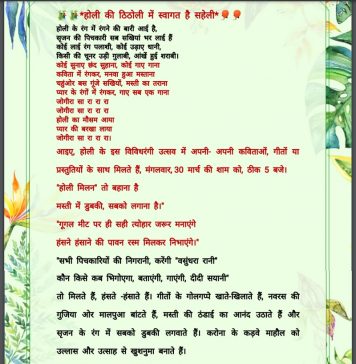 *होली की ठिठोली में स्वागत है सहेली*
होली के रंग में रंगने की बारी आई है,
सृजन की पिचकारी सब सखियां भर लाई हैं
कोई लाई रंग पलाशी, कोई उड़ाए धानी,
किसी की चूनर उड़ी गुलाबी, आंखें हुई शराबी।
कोई सुनाए छंद सुहाना, कोई गाए गाना
कविता में रंगकर, मनवा हुआ मस्ताना
चहुंओर बस गूंजे सखियों, मस्ती का तराना
प्यार के रंगों में रंगकर, गाए सब एक गाना
जोगीरा सा रा रा रा
जोगीरा सा रा रा रा
होली का मौसम आया
प्यार की बरखा लाया
जोगीरा सा रा रा रा।
आइए, होली के इस विविधरंगी उत्सव में अपनी- अपनी कविताओं, गीतों या
प्रस्तुतियों के साथ मिलते हैं, मंगलवार, 30 मार्च की शाम को, ठीक 5 बजे।
"होली मिलन" तो बहाना है
मस्ती में डुबकी, सबको लगाना है।"
"गूगल मीट पर ही सही त्योहार जरूर मनाएंगे
हंसने हंसाने की पावन रस्म मिलकर निभाएंगे।"
"सभी पिचकारियों की निगरानी, करेंगी "वसुंधरा रानी"
कौन किसे कब भिगोएगा, बताएंगी, गाएंगी, दीदी सयानी"
तो मिलते हैं, हंसते -हंसाते हैं। गीतों के गोलगप्पे खाते-खिलाते हैं, नवरस की
गुजिया ओर मालपुआ बांटते हैं, मस्ती की ठंडाई का आनंद उठाते हैं और
सृजन के रंग में सबको डुबकी लगवाते हैं। करोना के कड़वे माहौल को
उल्लास और उत्साह से खुशनुमा बनाते हैं।